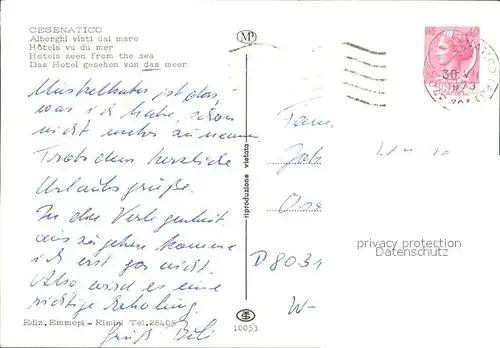 CESENATICO
Alberghi visti dal mare
Hôtels vu du mer
Hotels seen from the sea
Das Hotel gesehen von das meer
MP
30 VII
1973
Muskelkater ist das,
was ich habe, schon
nicht mehr zu nennen
Trotzdem herzliche
Urlaubsgrüße.
In die Verlegenheit
auszugehen komme
ich erst gar nicht.
Also wird es eine
richtige Erholung.
Ediz. Emmepi - Rimini Tel. 28408
Gruß
riproduzione vietata
10053
Fam.
D 8031
W-
privacy protection
Datenschutz